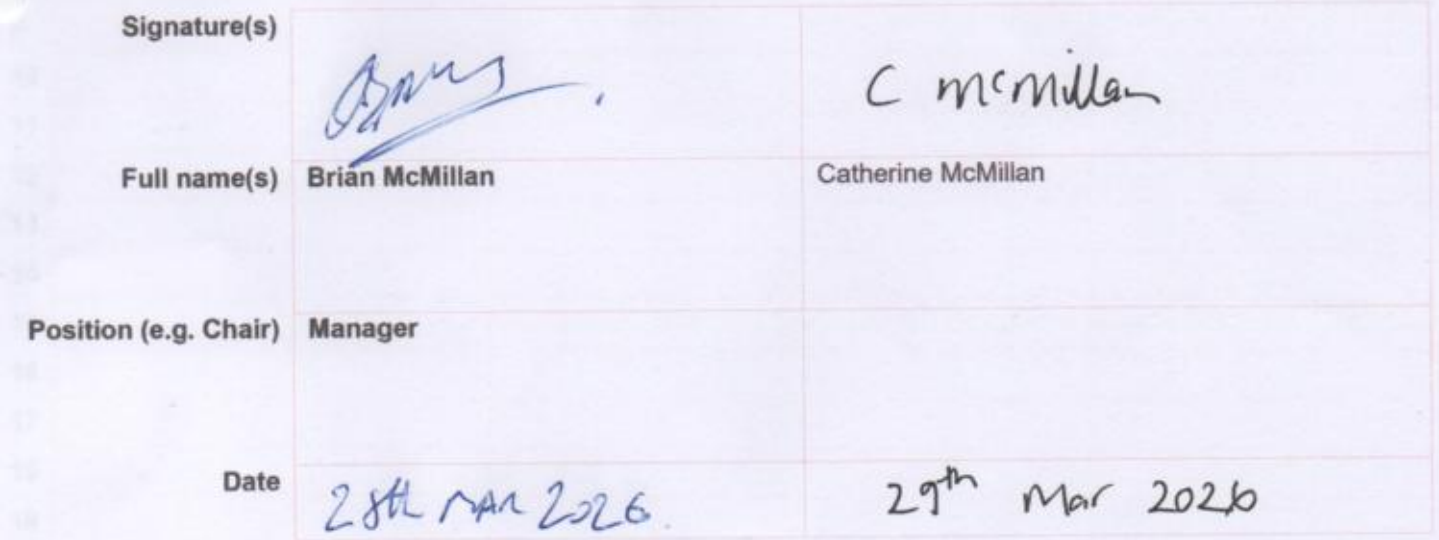 Signature(s)
C McMillan
Full name(s) Brian McMillan Catherine McMillan
Position (e.g. Chair) Manager
Date 28th MAR 2026. 29th Mar 2026